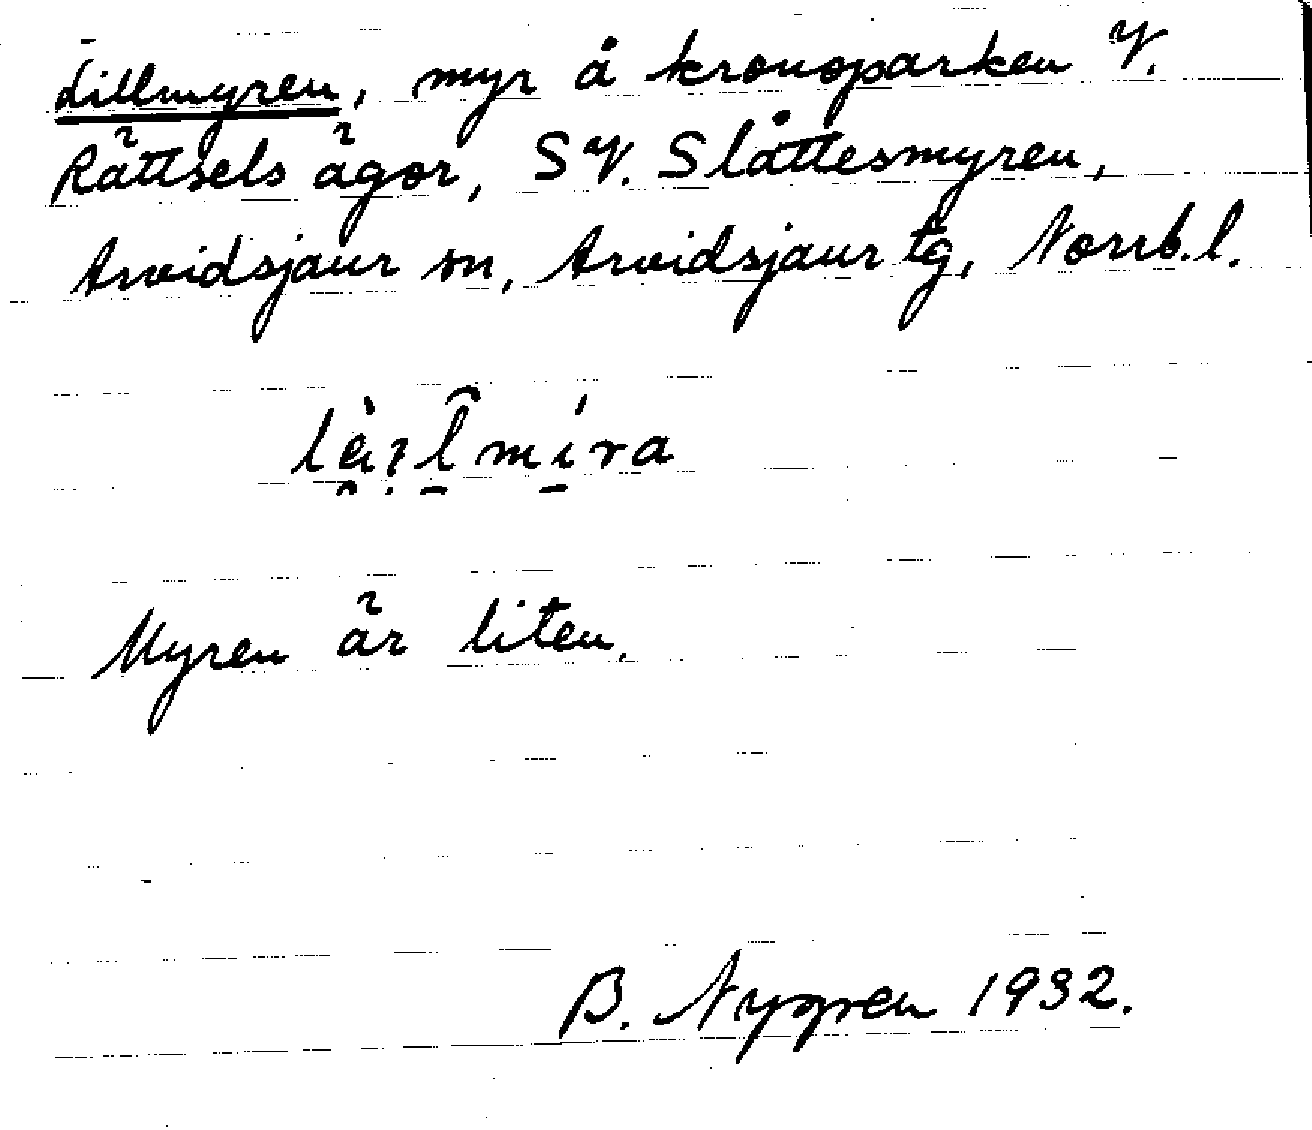 Lillmyren, myr å kronoparken V.
Rättsels ägor, SV. Slåttesmyren,
Arvidsjaur sn, Arvidsjaur tg, Norrb.l.
Myren är liten.
B. Nygren 1932.